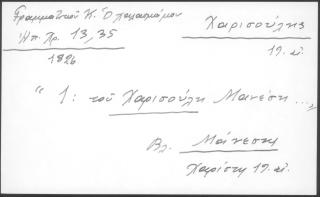 Γραμματικού Κ. Ὁ χαρισμάτων
Ἠπ. Χρ. 13, 35
1826
Χαρισούλης
19. αἰ.
"1: τοῦ Χαρισούλη Μανέση ...,
Βλ. Μάνεση
Χαρίση 19. αἰ.